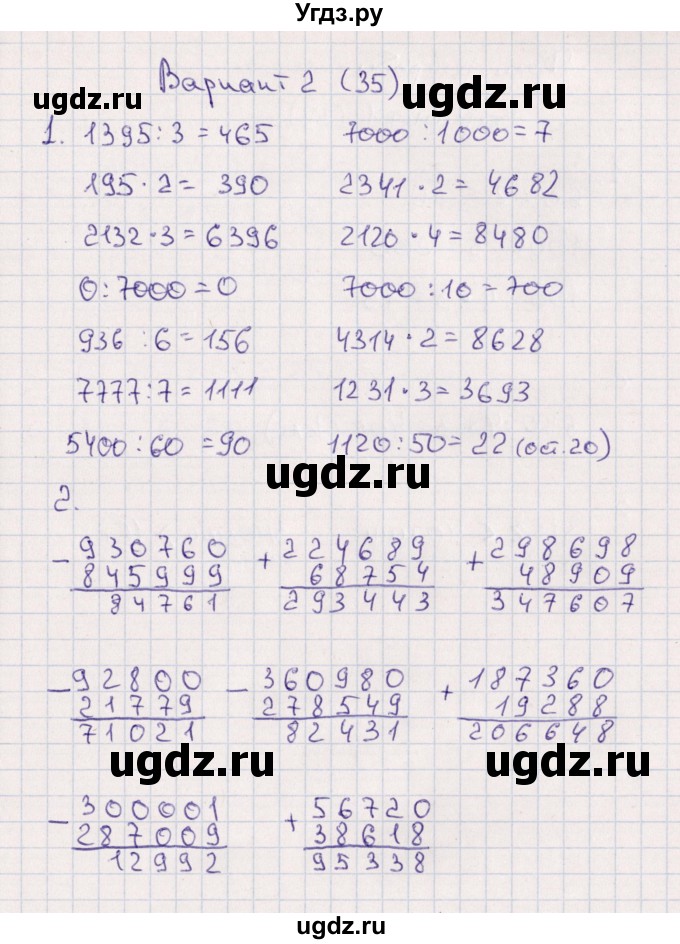 Угдз.ру
Вариант 2 (35)
ugdz.ru ugdz.ru
1. 1395:3=465 7000:1000=7
195·2= 390 2341·2= 4682
ugdz.ru
2132·3=6396 2120·4=8480
0:7000=0 7000:10=700
936 :6=156 4314·2=8628
7777:7=1111 1231·3=3693
5400:60 =90 1120:50=22(ост.20)
ugdz.ru
2.
- 930760 + 224689 + 298698
845999 68754 48909
84761 293443 347607
- 92800 - 360980 + 187360
21779 278549 19288
71021 82431 206648
ugdz.ru ugdz.ru
- 300001 + 56720
287009 38618
12992 95338
ugdz.ru